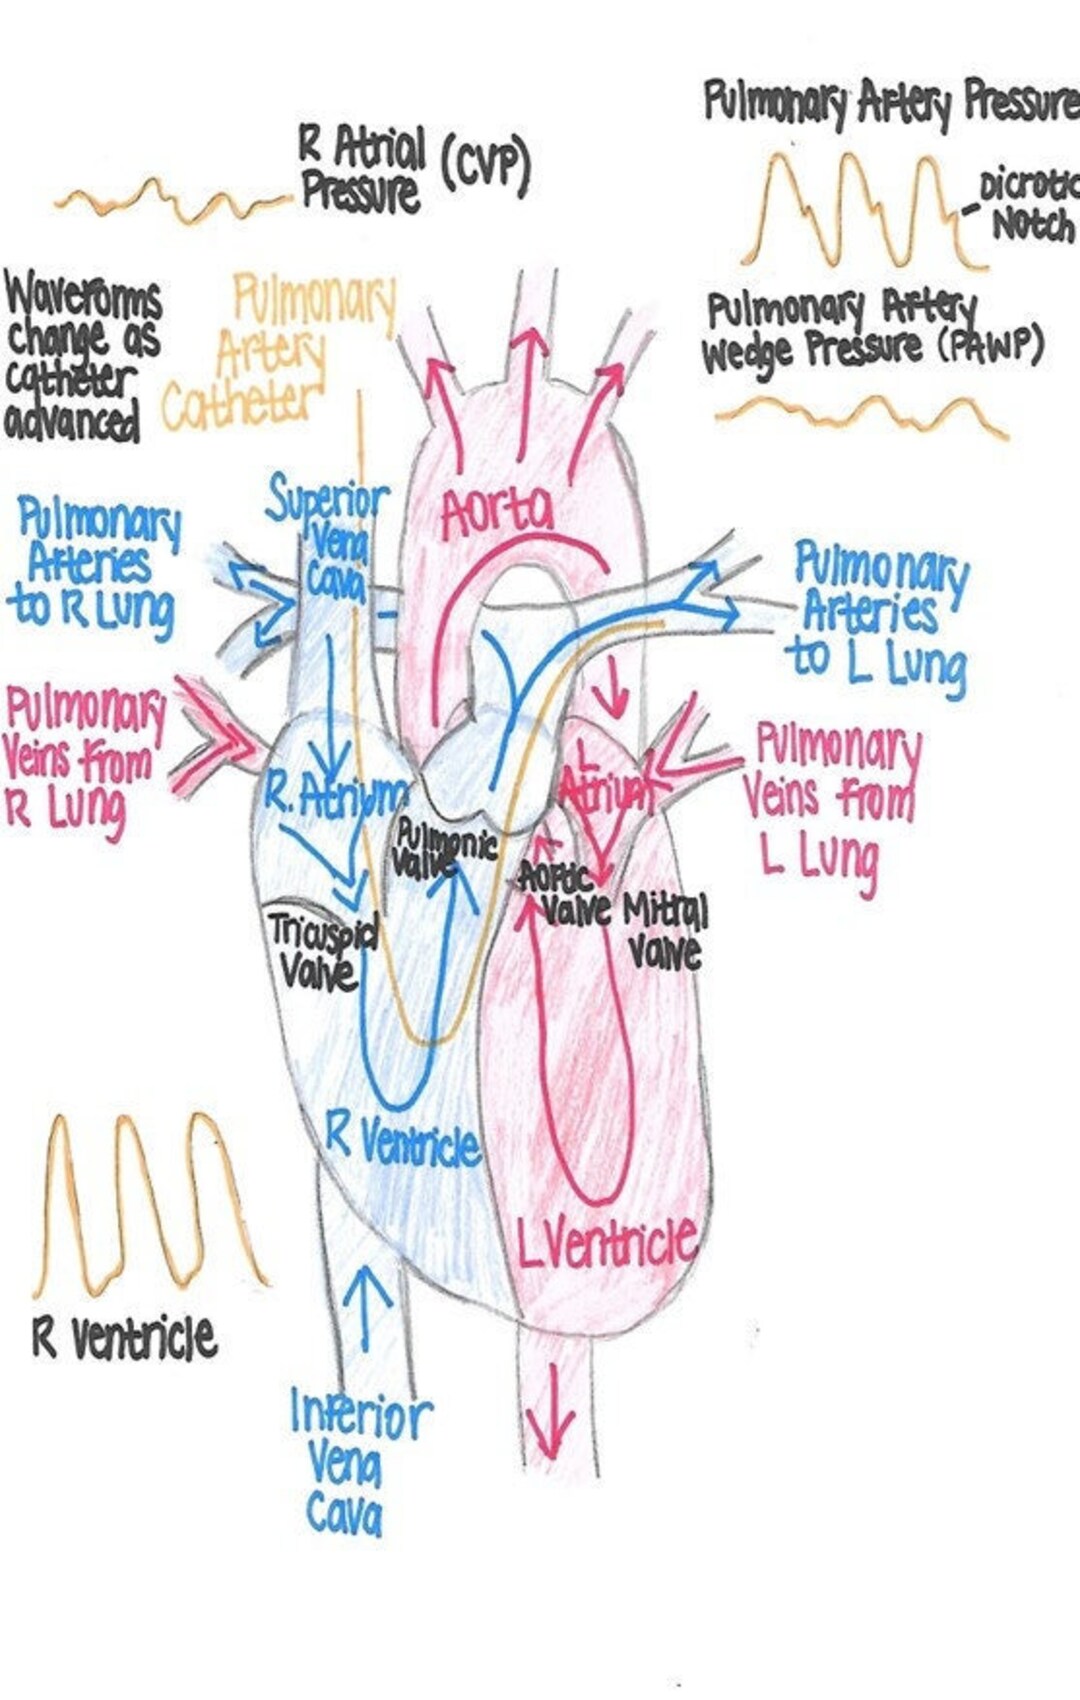 Pulmonary Artery Pressure
R Atrial (CVP)
Pressure
Dicrotic
Notch
Waveforms
change as
catheter
advanced
Pulmonary
Artery
Catheter
Pulmonary Artery
Wedge Pressure (PAWP)
Superior
Vena
Cava
Aorta
Pulmonary
Arteries
to R Lung
Pulmonary
Arteries
to L Lung
Pulmonary
Veins from
R Lung
R. Atrium
L
Atrium
Pulmonary
Veins from
L Lung
Pulmonic
Valve
Aortic
Valve
Mitral
Valve
Tricuspid
Valve
R Ventricle
L Ventricle
R Ventricle
Inferior
Vena
Cava